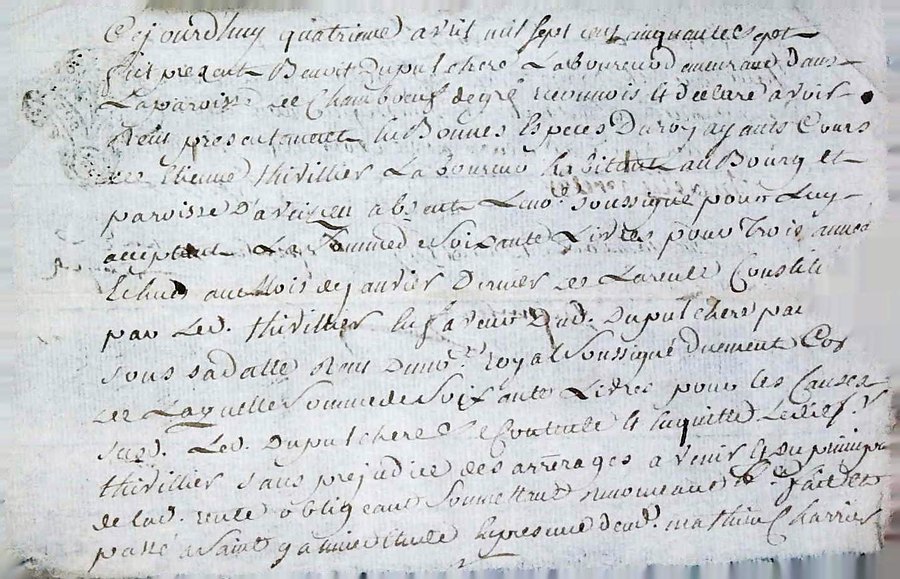 Cejourdhuy quatrieme avril mil sept cent cinquante sept
fut present Benoit Dupulchere Laboureur demeurant dans
La paroisse de Chambœuf de gré reconnois & declare avoir
Reçu presentement En Bonnes Especes Du roy ayants Cours
de Etienne thivillier Laboureur habitant au Bourg et
paroisse D'aveizen absent Le no.re soussigné pour Luy
acceptant La Somme de Soixante Livres pour Trois année
Echues au Mois de janvier Dernier de La rente Constitu
par Led. thivillier En faveur Dud. Dupulchere par
sous sa datte Reçu Du no.re royal Soussigné duement
de Laquelle Somme de Soixante Livres pour les Causes
susd. Led. Dupulchere Se Contente & En quitte Ledit
thivillier sans prejudice des arrerages a venir & du principa
de lad. rente obligeant Soumettant renonceant &c. fait et
passé a Saint galmier Etude En presence de mathieu Charrier